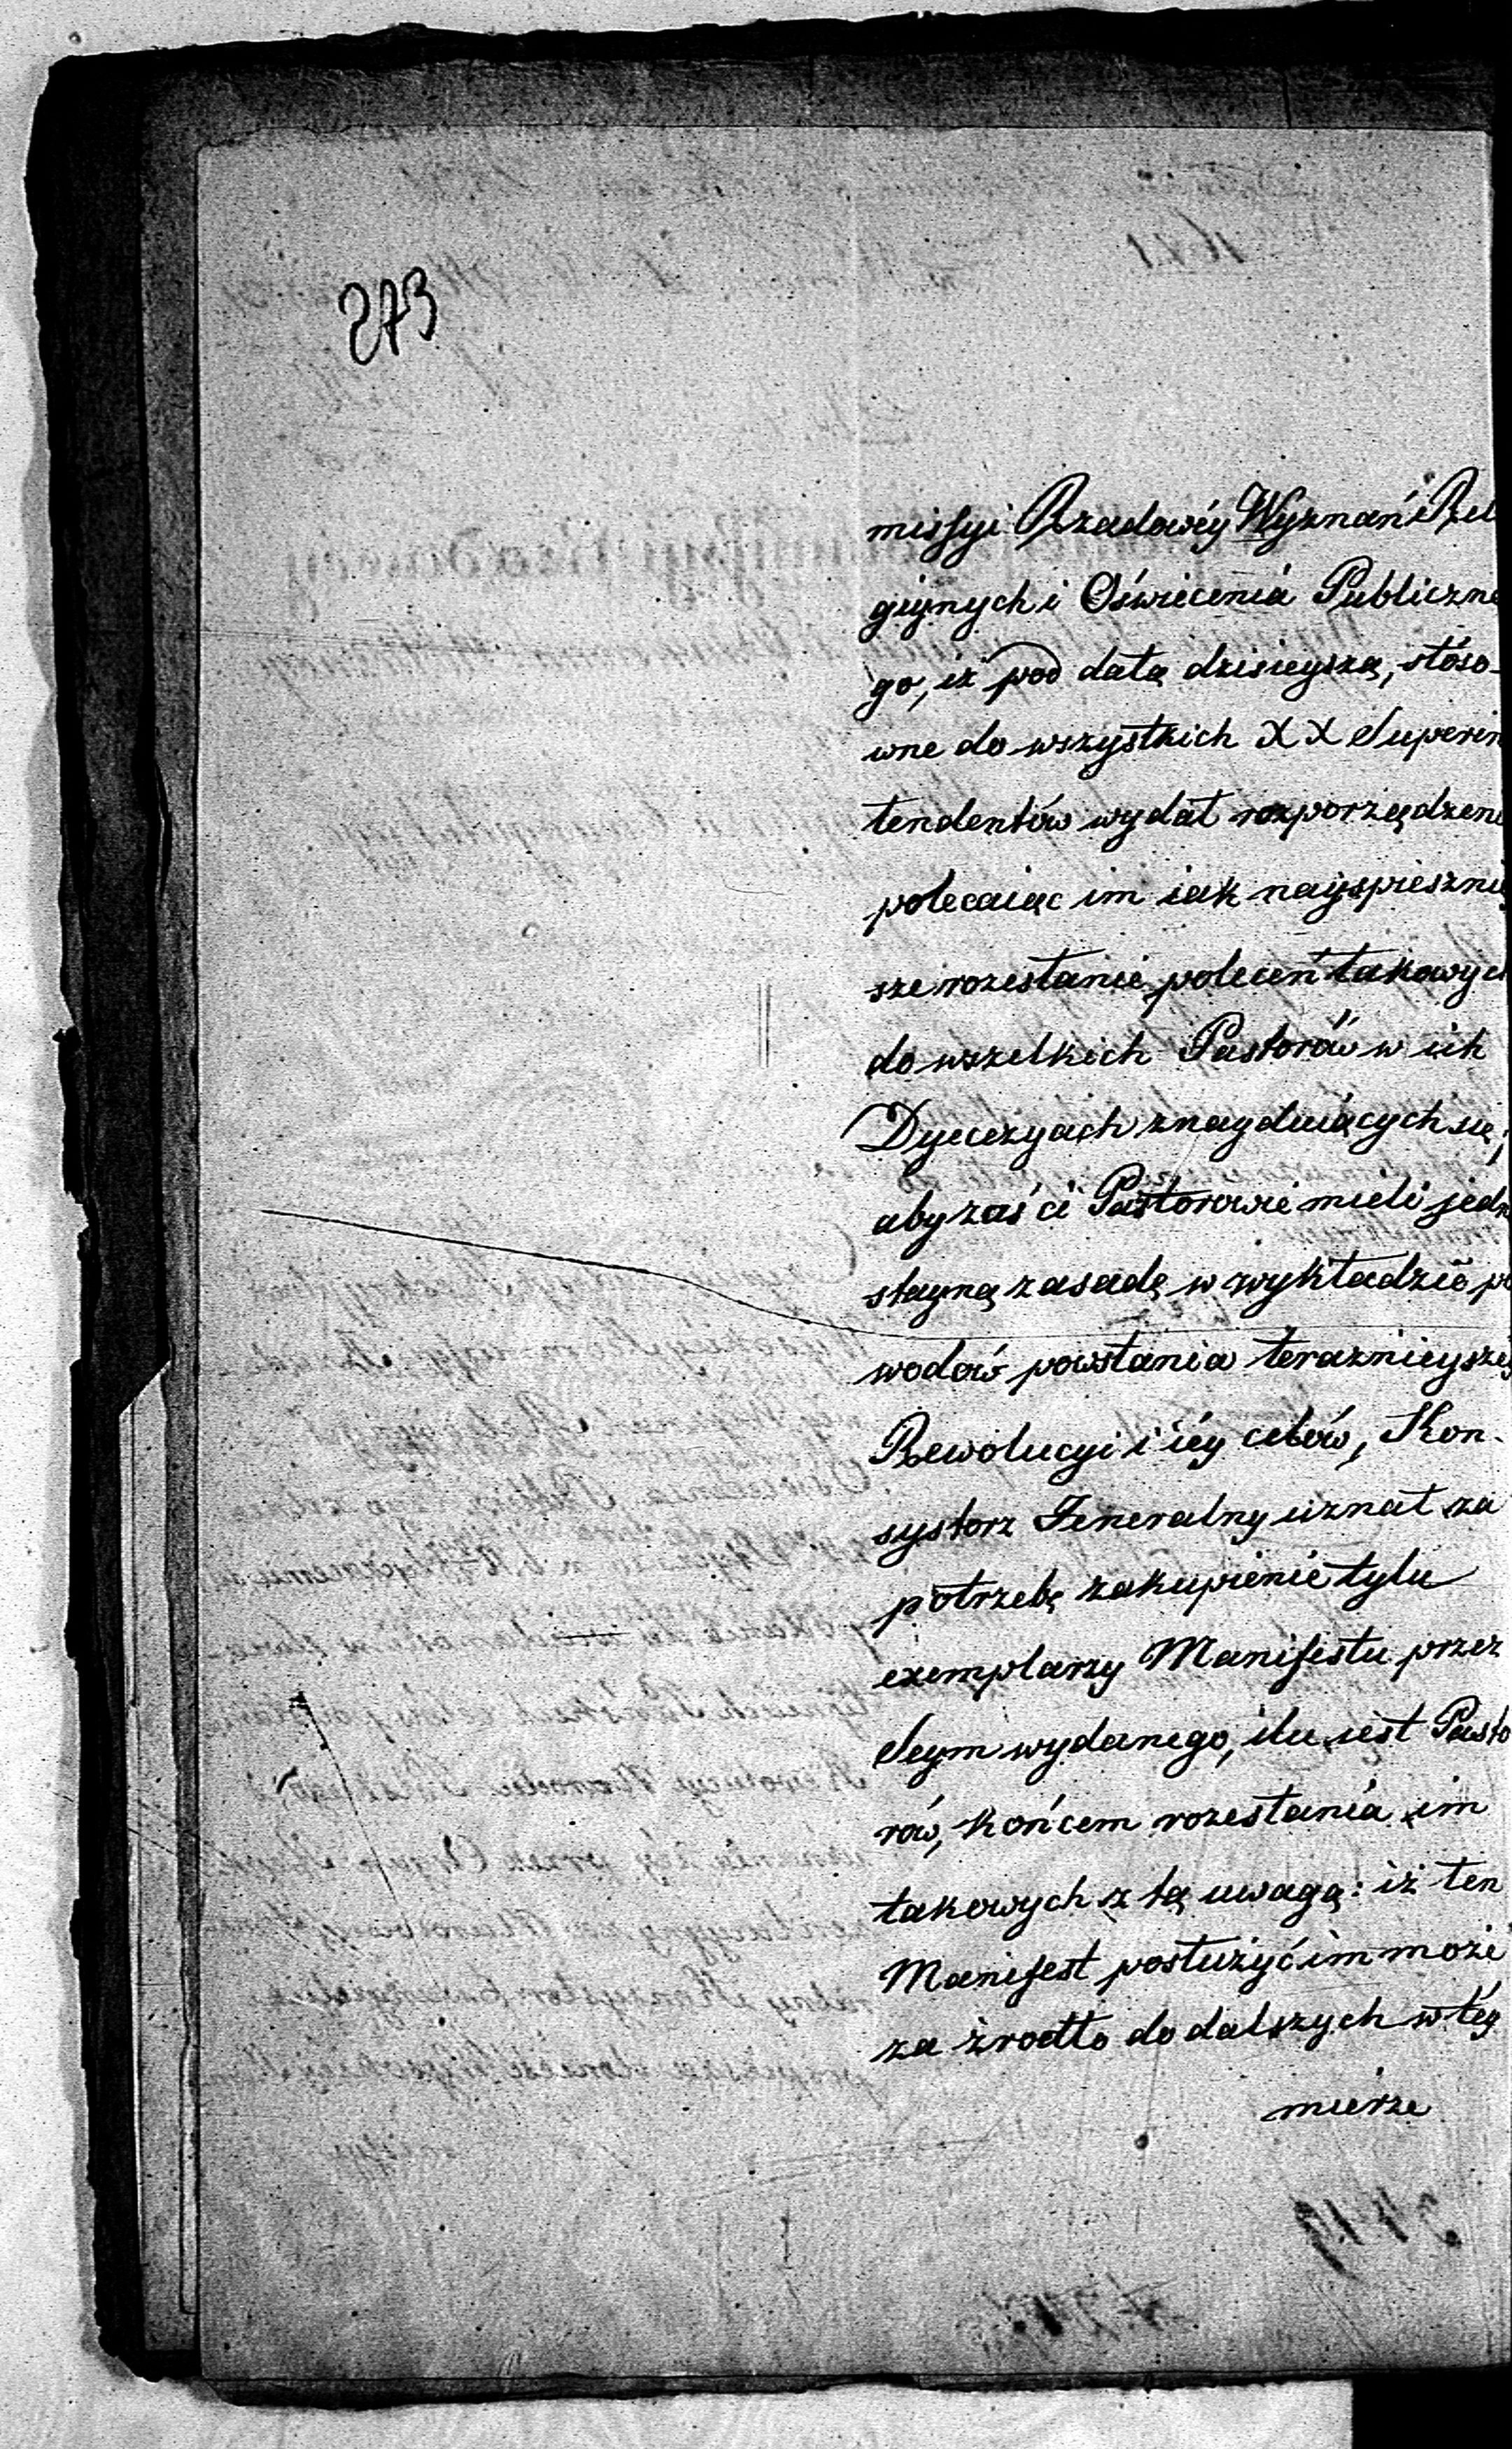 273
missyi Rządowéy Wyznań Rel
giynych i Oświecenia Publiczne
go, iż pod datą dzisieyszą, stóso-
wne do wszystkich XX Superin
tendentów wydał rozporządzeni
polecaiąc im iak nayspieszniey
sze rozesłanie poleceń takowych
do wszelkich Pastorów w ich
Dyecezyach znayduiących się,
aby zaś ci Pastorowie mieli jedno
stayną zasadę w wykładzie po
wodów powstania teraznieyszey
Rewolucyi i iéy celów, Kon-
systorz Jeneralny uznał za
potrzebę zakupienie tylu
exemplarzy Manifestu przez
Seym wydanego, ilu iest Pasto
rów, końcem rozesłania im
takowych z tą uwagą: iż ten
Manifest posłużyć im może
za żrodło do dalszych w téy
mierze